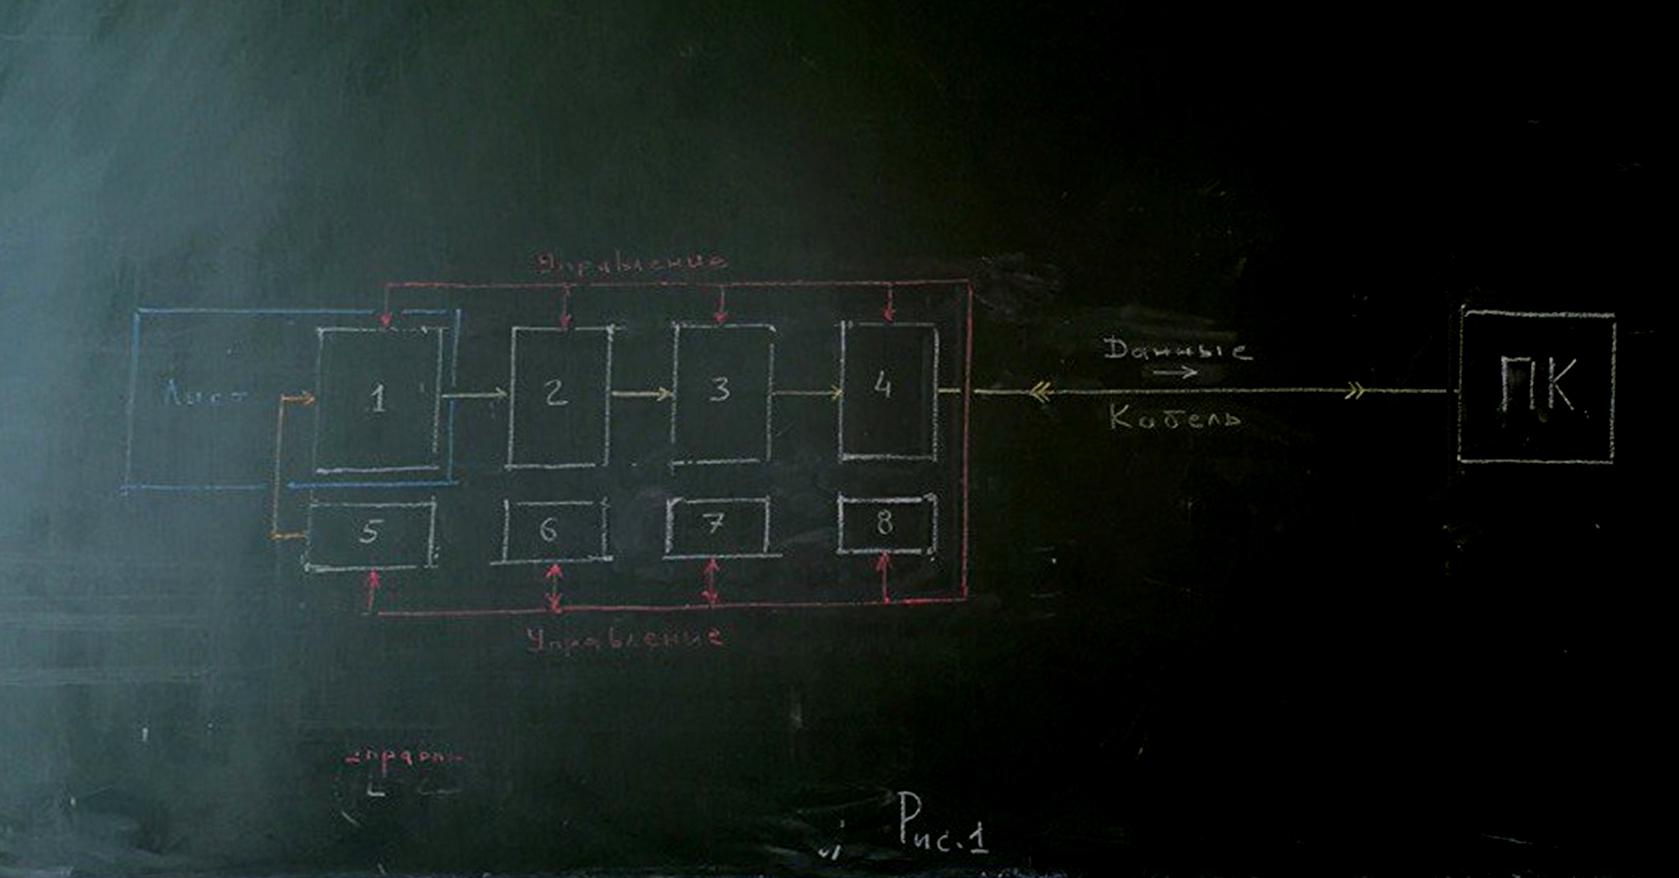 Управление
Лист
1
2
3
4
Данные
Кабель
ПК
5
6
7
8
Управление
Рис.1